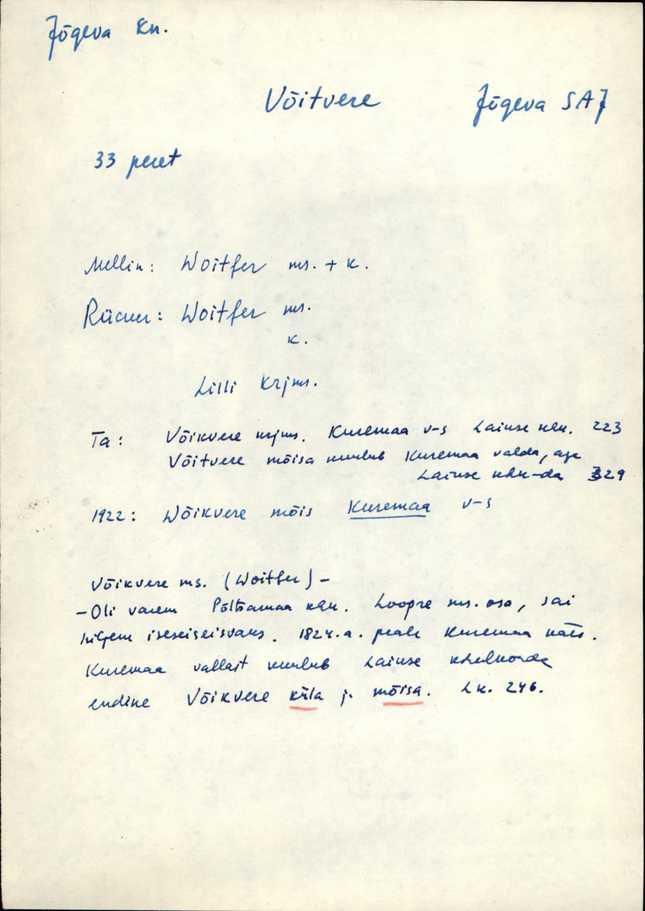 Jõgeva kn.
Võitvere Jõgeva SAJ
33 peret
Mellin: Woitfer ms. + k.
Rücker: Woitfer ms.
k.
Lilli krjms.
Ta: Võikvere krjms. Kuremaa v-s Laiuse khk. 223
Võitvere mõisa kuulub Kuremaa valda, aga
Laiuse khk-da 329
1922: Wõikvere mõis Kuremaa v-s
Võikvere ms. (Woitfer) –
– Oli varem Põltsamaa khk. Loopre ms. osa, sai
hiljem iseseisvaks. 1824. a. peale Kuremaa
Kuremaa vallast kuulub Laiuse kihelkonda
endine Võikvere küla j. mõisa. Lk. 246.